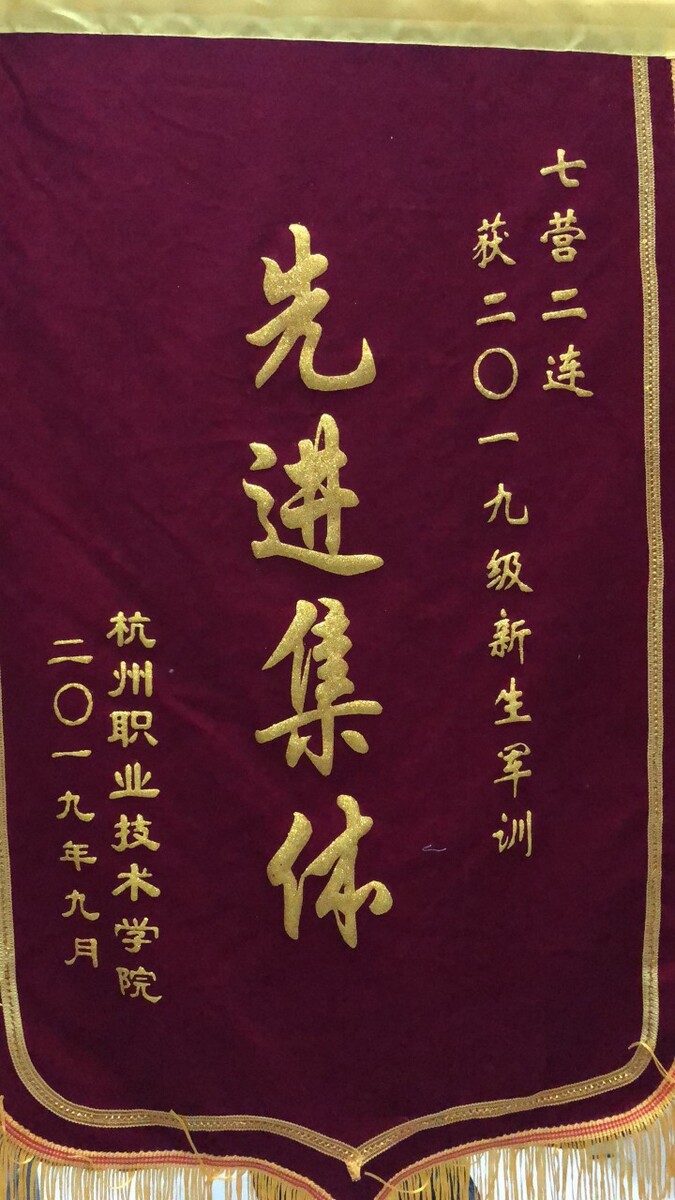 七营二连
获二〇一九级新生军训
先进集体
杭州职业技术学院
二〇一九年九月